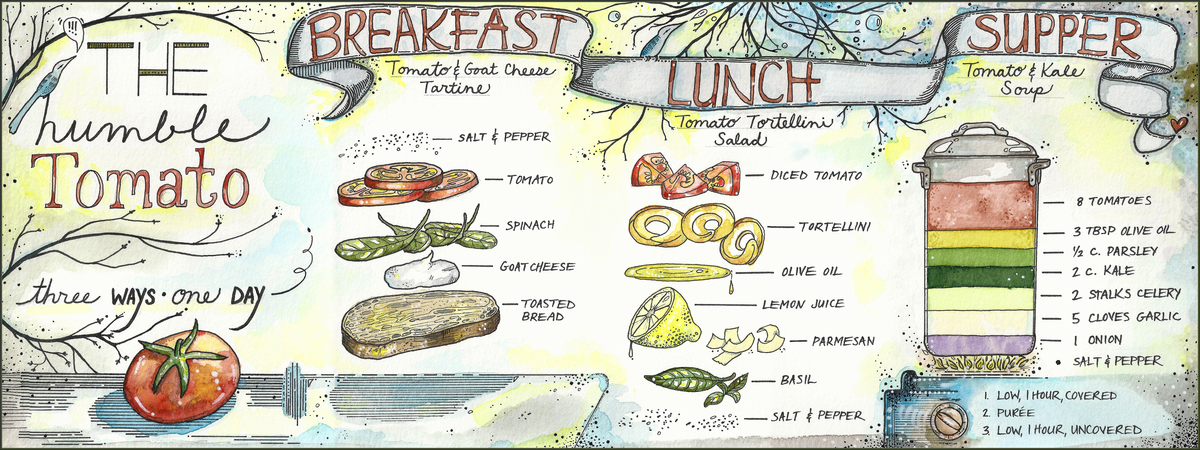 !!!
THE
humble
Tomato
three WAYS · one DAY
BREAKFAST
Tomato & Goat Cheese
Tartine
SALT & PEPPER
TOMATO
SPINACH
GOAT CHEESE
TOASTED
BREAD
LUNCH
Tomato Tortellini
Salad
DICED TOMATO
TORTELLINI
OLIVE OIL
LEMON JUICE
PARMESAN
BASIL
SALT & PEPPER
SUPPER
Tomato & Kale
Soup
8 TOMATOES
3 TBSP OLIVE OIL
½ C. PARSLEY
2 C. KALE
2 STALKS CELERY
5 CLOVES GARLIC
1 ONION
• SALT & PEPPER
1. LOW, 1 HOUR, COVERED
2. PURÉE
3. LOW, 1 HOUR, UNCOVERED